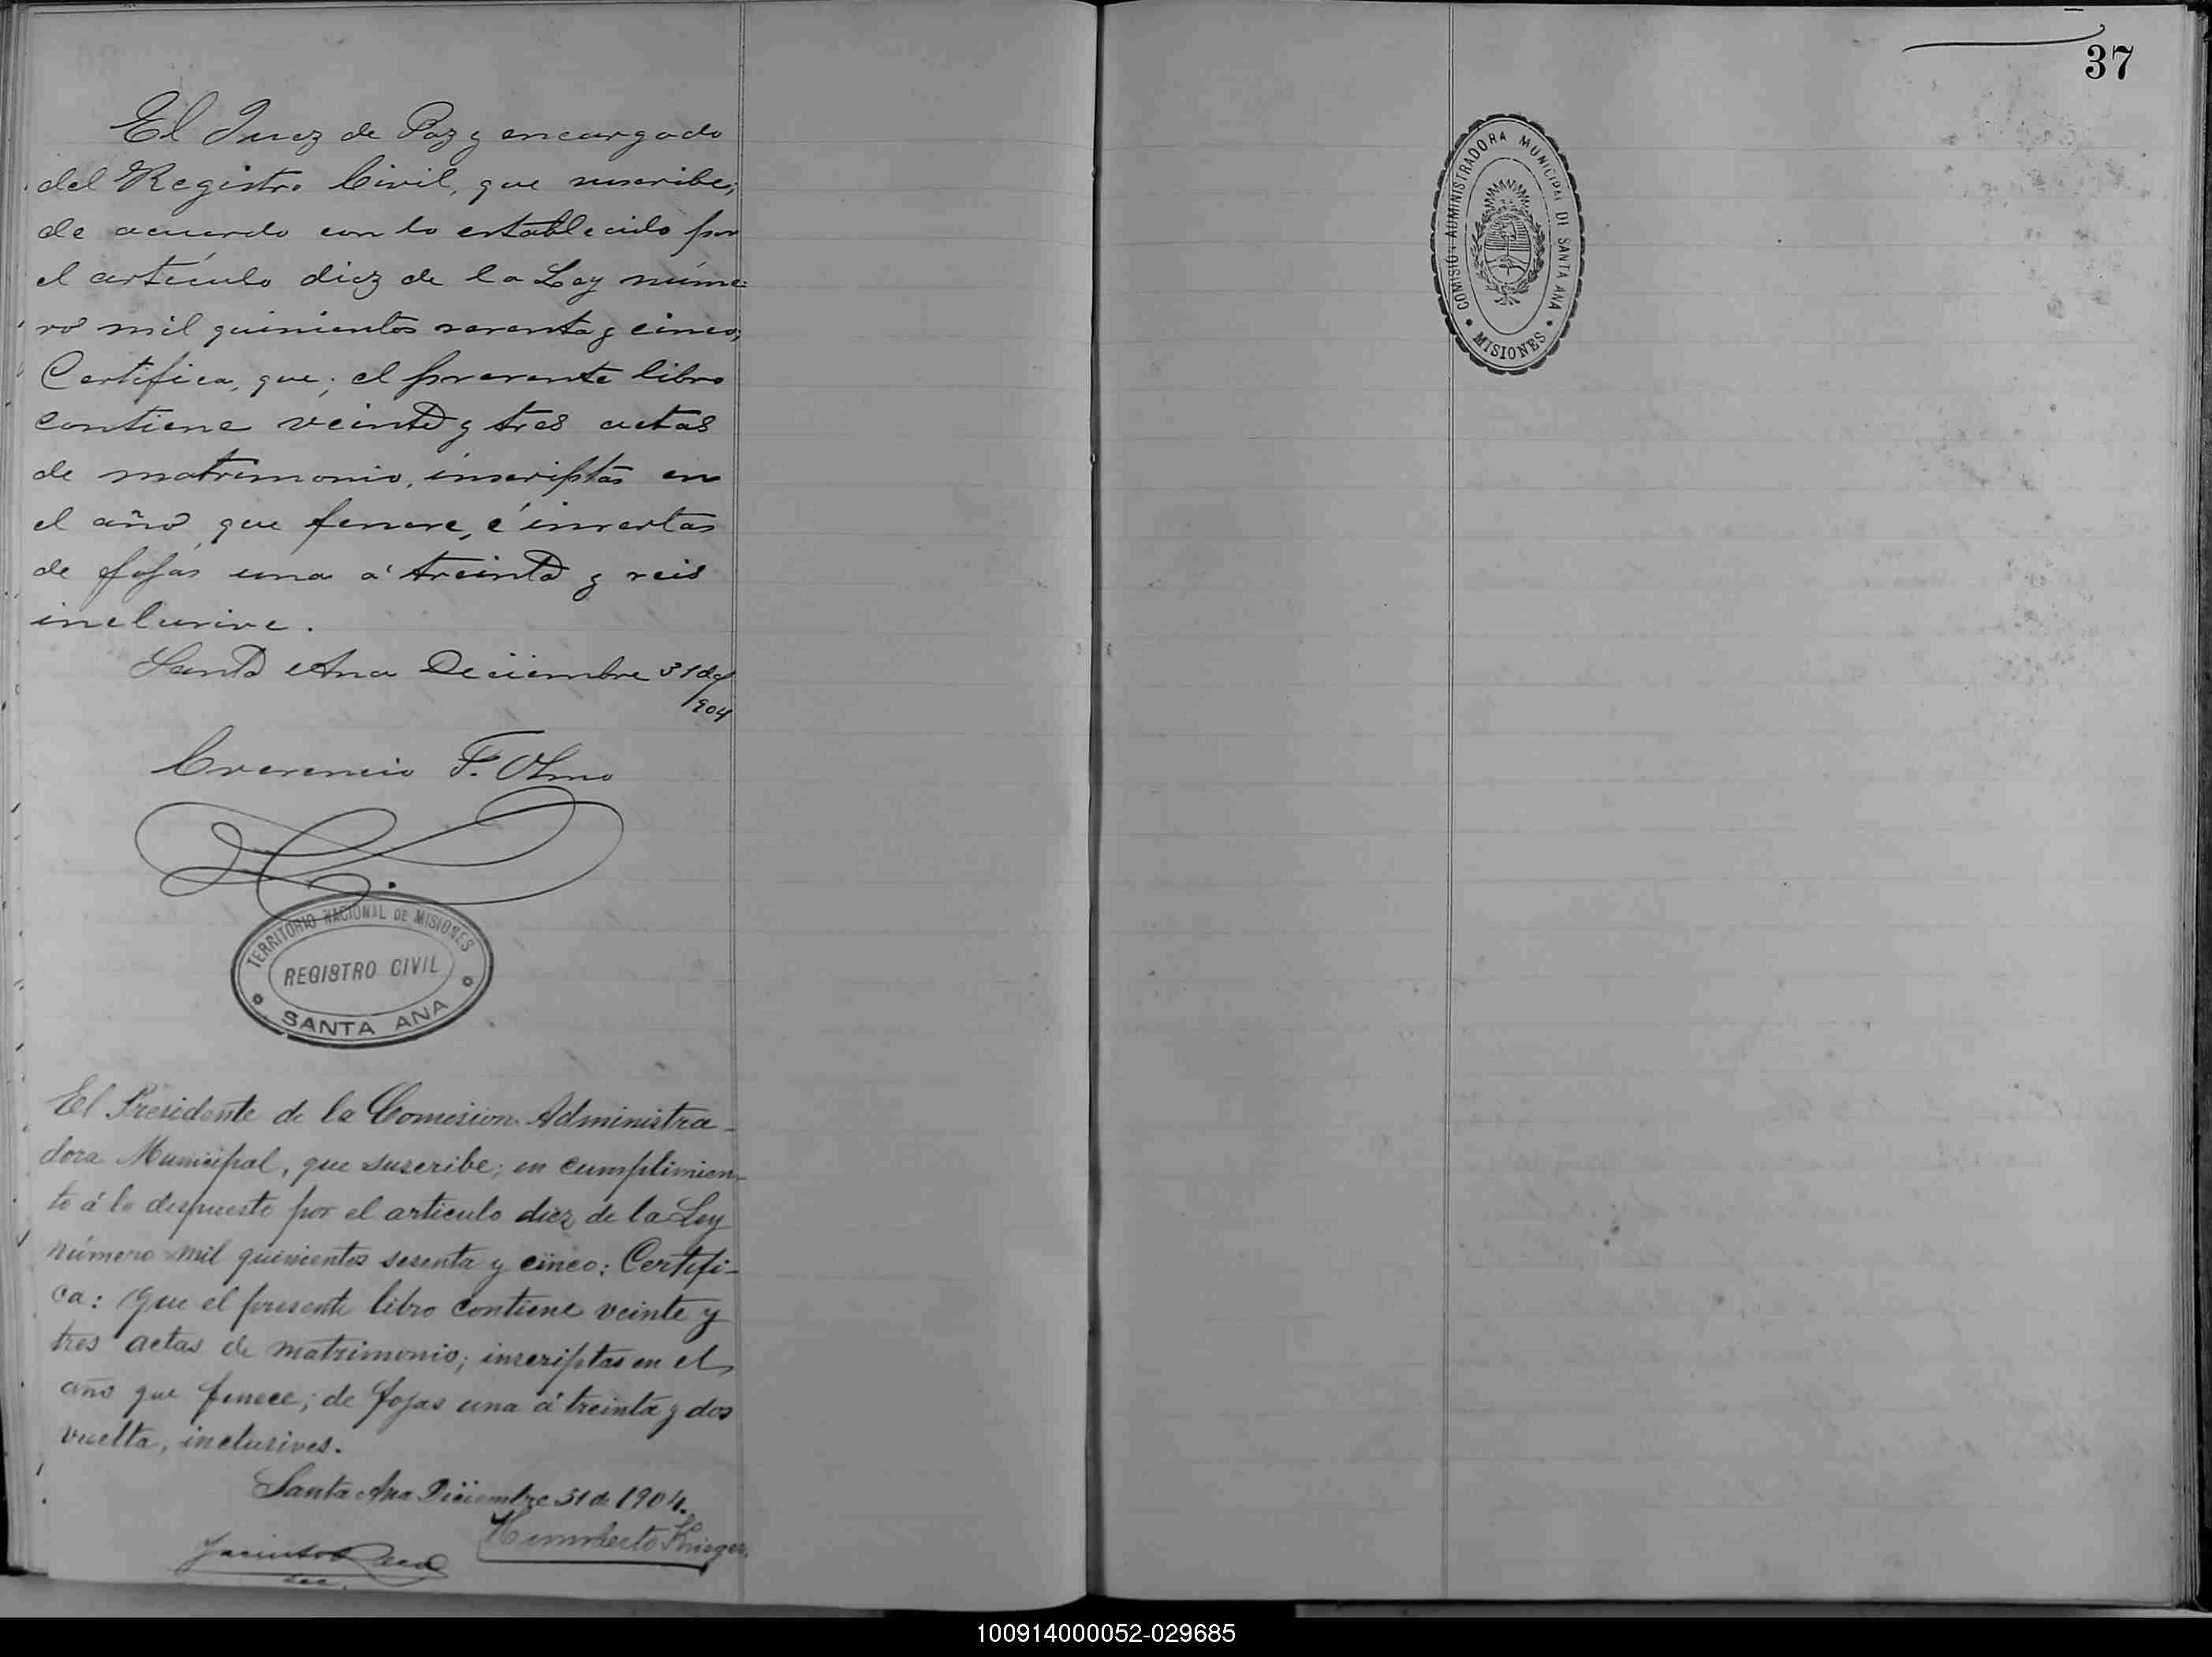 El Juez de Paz y encargado
del Registro Civil, que suscribe;
de acuerdo con lo establecido por
el artículo diez de la Ley núme=
ro mil quinientos sesenta y cinco;
Certifica, que; el presente libro
contiene veinte y tres actas
de matrimonio, inscriptas en
el año, que fenece, é insertas
de fojas una á treinta y seis
inclusive.
Santa Ana Deciembre 31 de/
904
Crecencio F. Olmo
TERRITORIO NACIONAL DE MISIONES
REGISTRO CIVIL
SANTA ANA
El Presidente de la Comision Administra-
dora Municipal, que suscribe; en cumplimien-
to á lo despuesto por el articulo diez de la Ley
número mil quinientos sesenta y cinco: Certifi-
ca: Que el presente libro contiene veinte y
tres actas de matrimonio; inscriptas en el
año que fenece; de fojas una á treinta y dos
vuelta, inclusives.
Santa Ana Diciembre 31 de 1904.
Humberto Krieger
Jacinto
Sec.
37
COMISIÓN ADMINISTRADORA MUNICIPAL DE SANTA ANA
MISIONES
100914000052-029685